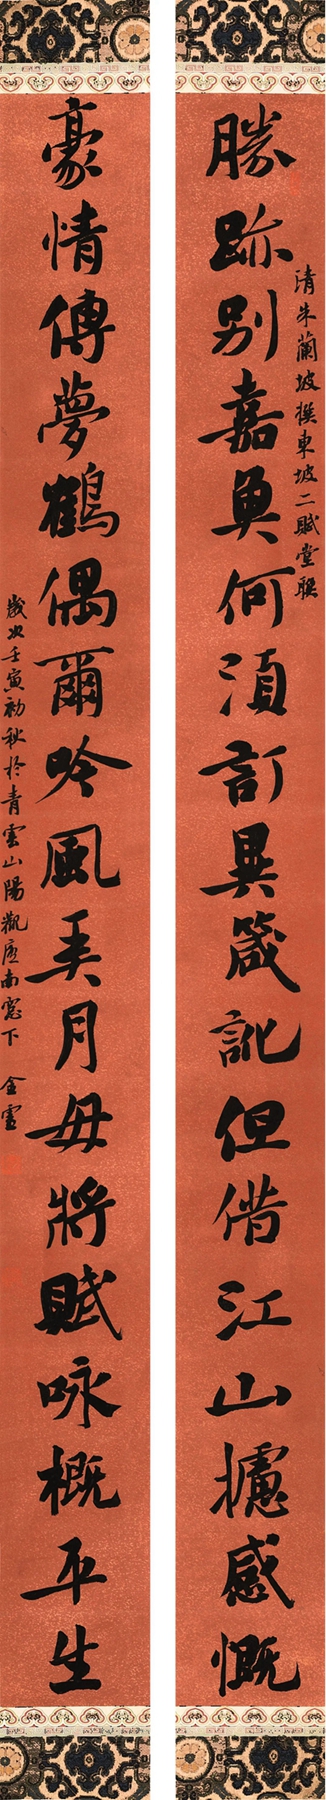 清朱蘭坡撰東坡二賦堂聯
勝跡别嘉魚何須訂異箴訛但借江山攄感慨
豪情傳夢鶴偶爾吟風弄月毋將賦咏概平生
歲次壬寅初秋於青雲山陽觀南窓下